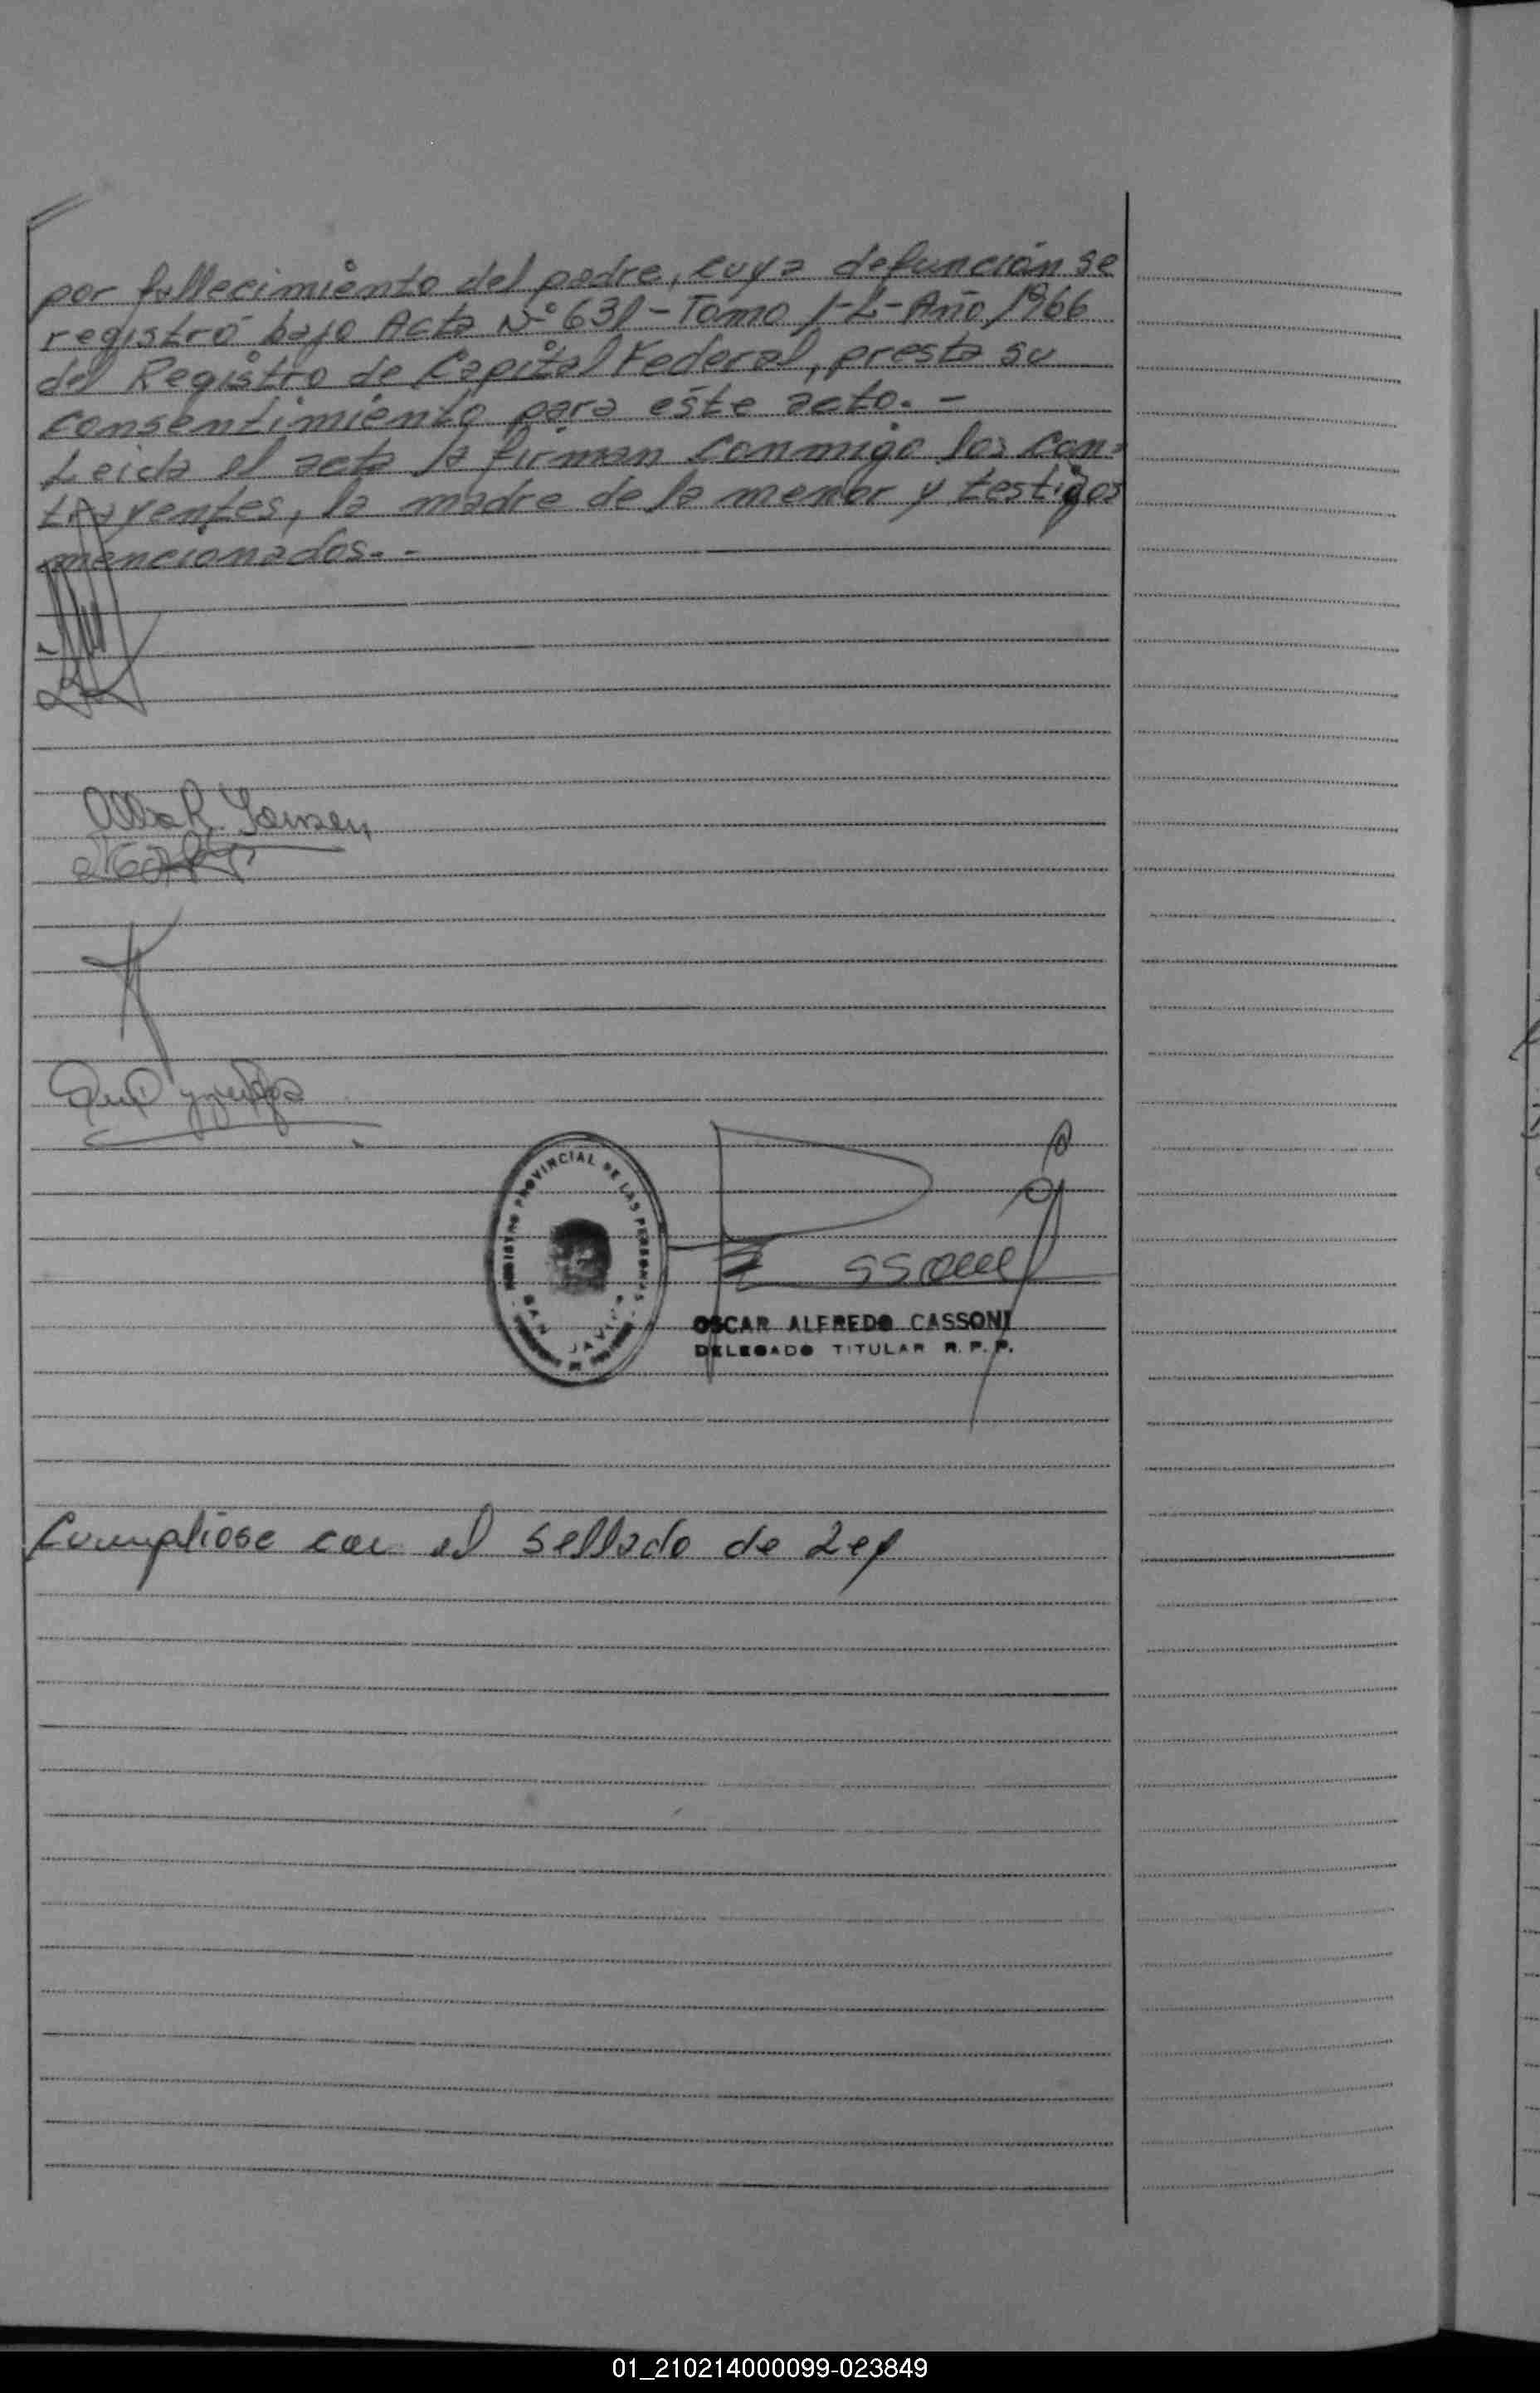 por fallecimiento del padre, cuya defunción se
registró bajo Acta Nº 631 - Tomo 1-L - Año 1966
del Registro de Capital Federal, presta su
consentimiento para éste acto. -
Leida el acta la firman conmigo los con-
trayentes, la madre de la menor y testigos
mencionados. -
Alba R. Jansen
REGISTRO PROVINCIAL DE LAS PERSONAS
SAN JAVIER
OSCAR ALFREDO CASSONI
DELEGADO TITULAR R. P. P.
Cumpliose con el sellado de Ley
01_210214000099-023849